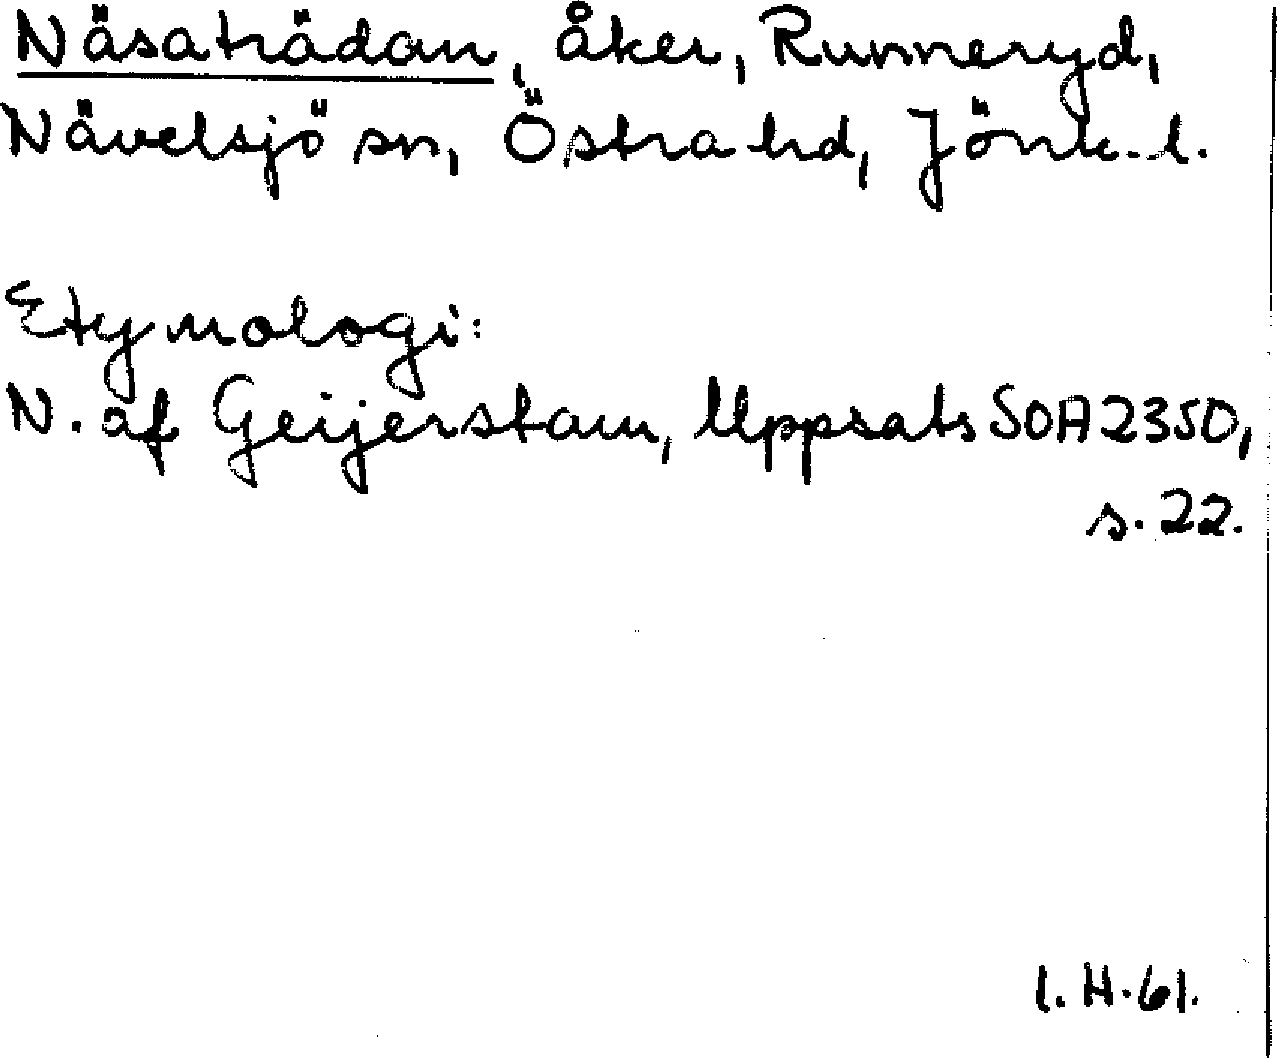 Näsaträdan, åker, Runneryd,
Nävelsjö sn, Östra hd, Jönk. l.
Etymologi:
N. af Geijerstam, Uppsats SOA 2350,
s. 22.
I. H. 61.